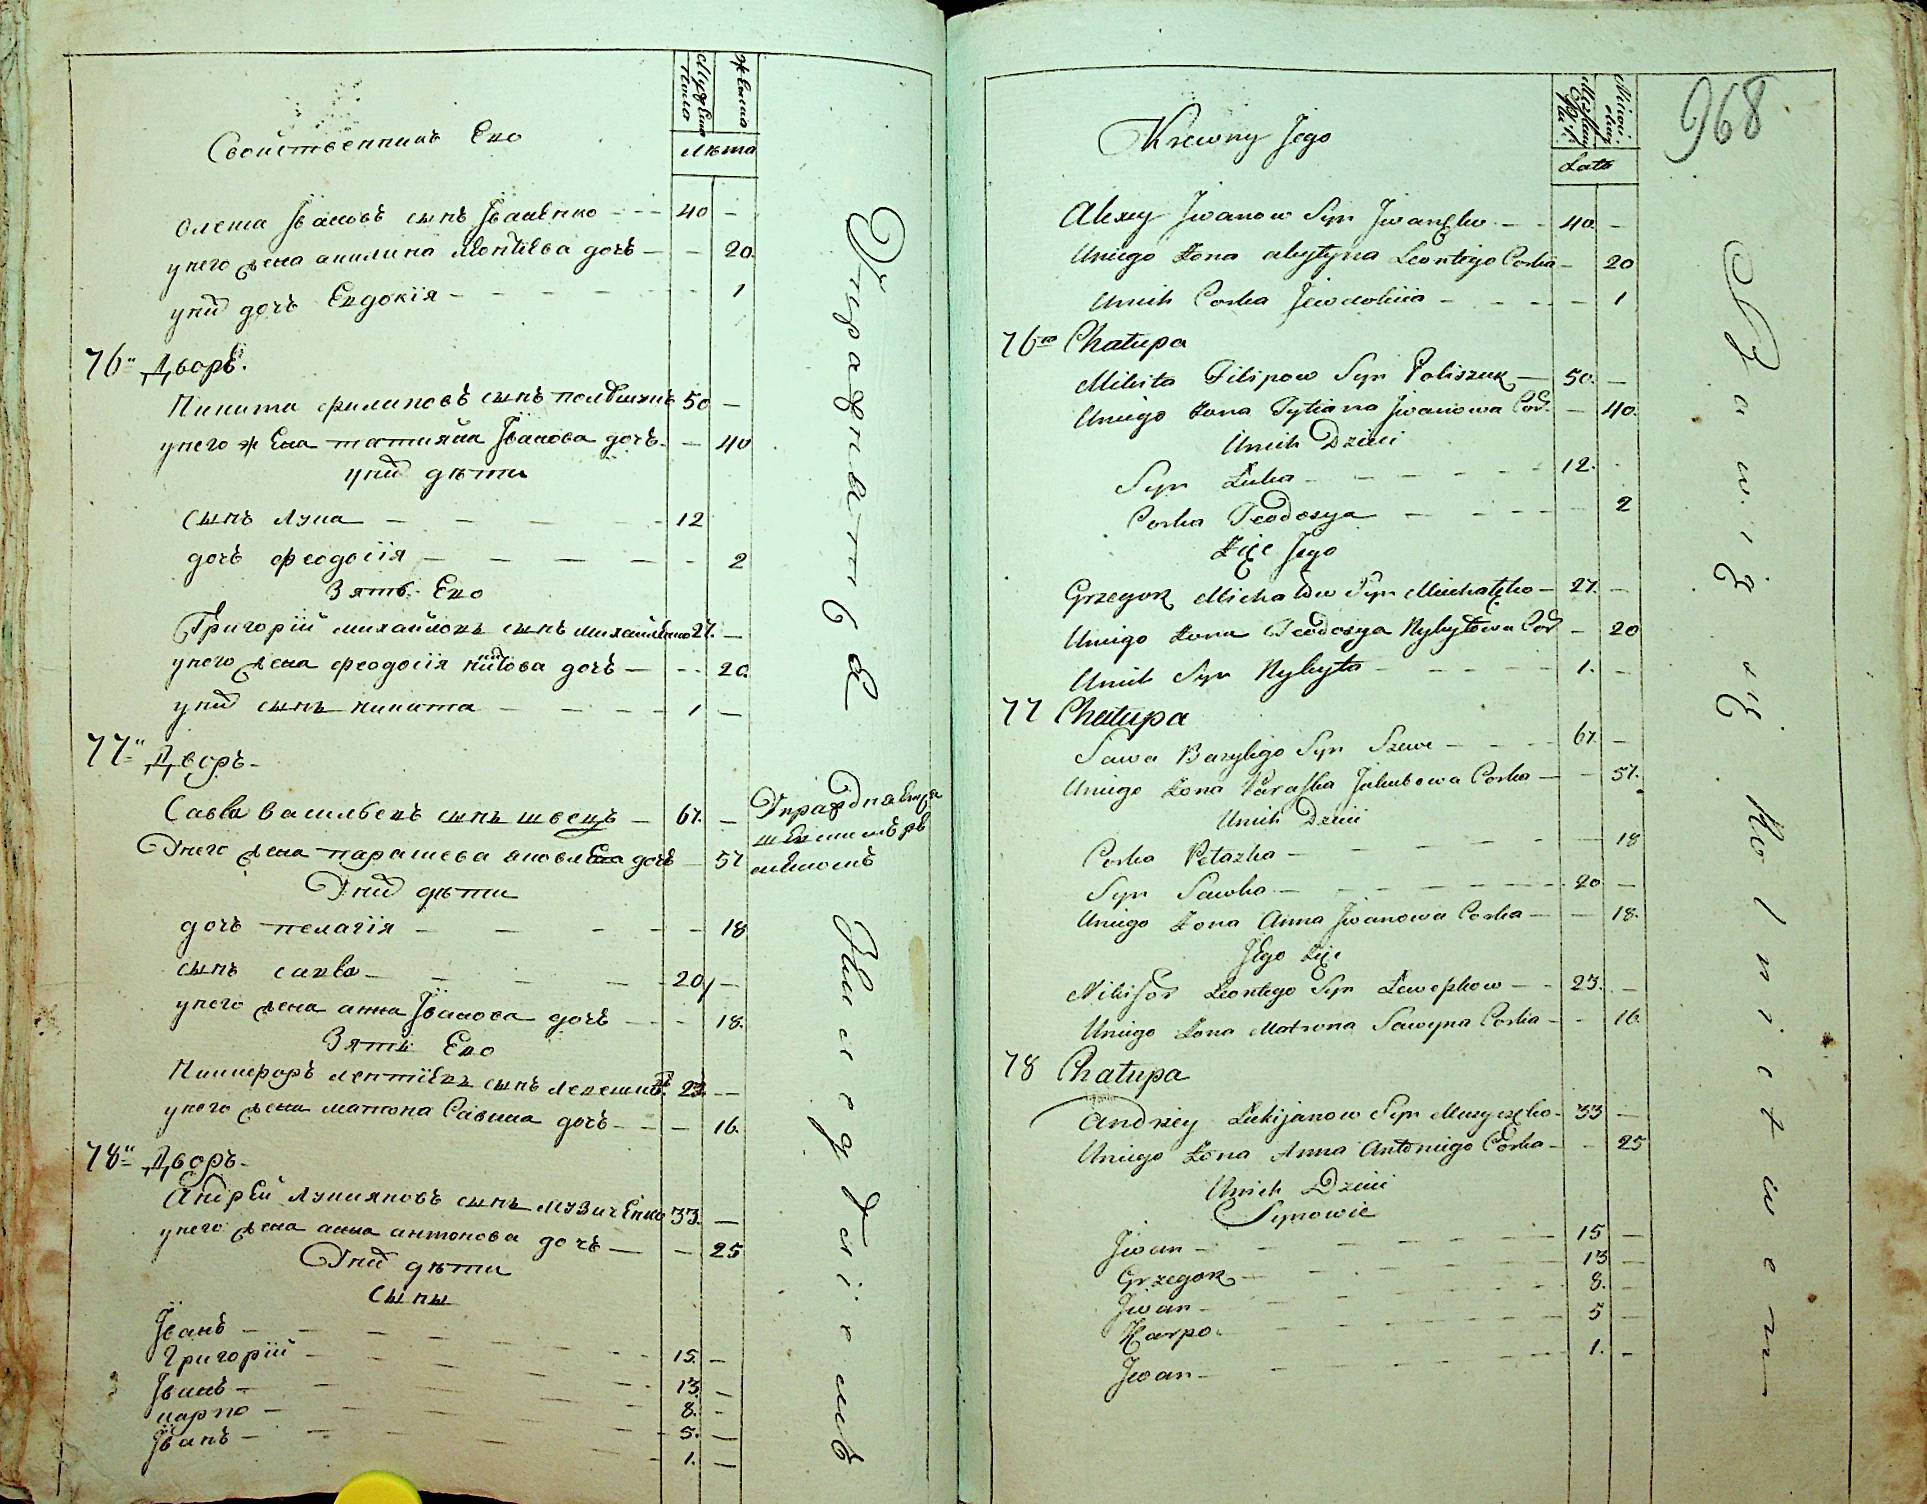 Мужеска пола
женска
Лѣта
Свойственникъ Его
Олеша Ївановъ сынъ Їваненко - - - 40 -
унего жена акилина леонтиева дочь - - 20.
унихъ дочь Евдокїя - - - - - - 1
76й Дворъ.
Никита филиповъ сынъ полѣщукъ 50 -
унего жена татияна Їванова дочь. - 40
унихъ дѣти
сынъ лука - - - - - 12
дочь феодосїя - - - - - 2
Зять Его
Григорїй михайловъ сынъ михайленко 27. -
унего жена феодосїя никитова дочь - - - 20.
унихъ сынъ никита - - - - 1 -
77й Дворъ -
Савва васильевъ сынъ швецъ - 67. -
Унего жена парашева яковлева дочь - 57
Унихъ дѣти
дочь пелагїя - - - - - 18
сынъ савва - - - - 20 -
унего жена анна Їванова дочь - - - 18.
Зять Его
Никифоръ леонтїевъ сынъ левешковъ. 23. -
унего жена матрона Савина дочь - - - 16.
78й Дворъ -
Андрей лукияновъ сынъ музиченко 33. -
унего жена анна антонова дочь - - 25
Унихъ дѣти
Сыны
Їванъ - - - - - 15. -
Григорїй - - - - - 13. -
Їванъ - - - - - 8. -
карпо - - - - - 5. -
Їванъ - - - - - 1. -
Упражняется
землепашествомъ
968
Lata
Krewny Jego
Alexey Jwanow Syn Jwanęko - - 40. -
Uniego Żona akytyna Leontego Corka - 20
Unich Corka Jewdokiia - - - - - 1
76ta Chałupa
Mikita Filipow Syn Poliszuk - 50. -
Uniego Żona Tytiana Jwanowa Cor. - 40.
Unich Dzieci
Syn Łuka - - - - - 12.
Corka Teodozya - - - - - 2
Zięć Jego
Grzegorz Michałow Syn Michałęko - 27. -
Uniego Żona Teodozya Nykytowa Cor. - 20
Unich Syn Nykyta - - - - - 1. -
77 Chałupa
Sawa Bazylego Syn Szewc - - - 67. -
Uniego Żona Paraska Jakubowa Corka - - 57.
Unich Dzieci
Corka Pelazka - - - - - - 18
Syn Sawka - - - - - - 20 -
Uniego Żona Anna Jwanowa Corka - - 18.
Jego Zięć
Nikifor Leontego Syn Leweszkow - - 23. -
Uniego Żona Matrona Sawyna Corka - - 16
78 Chałupa
Andrzey Łukijanow Syn Muzyczęko - 33 -
Uniego Żona Anna Antoniego Corka - - 25
Unich Dzieci
Synowie
Jwan - - - - - - 15 -
Grzegorz - - - - - - 13 -
Jwan - - - - - - 8. -
Karpo - - - - - - 5 -
Jwan - - - - - - 1. -